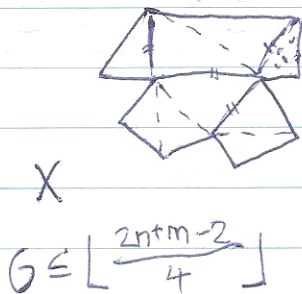 X
G ≤ ⌊ (2n+m-2)/4 ⌋